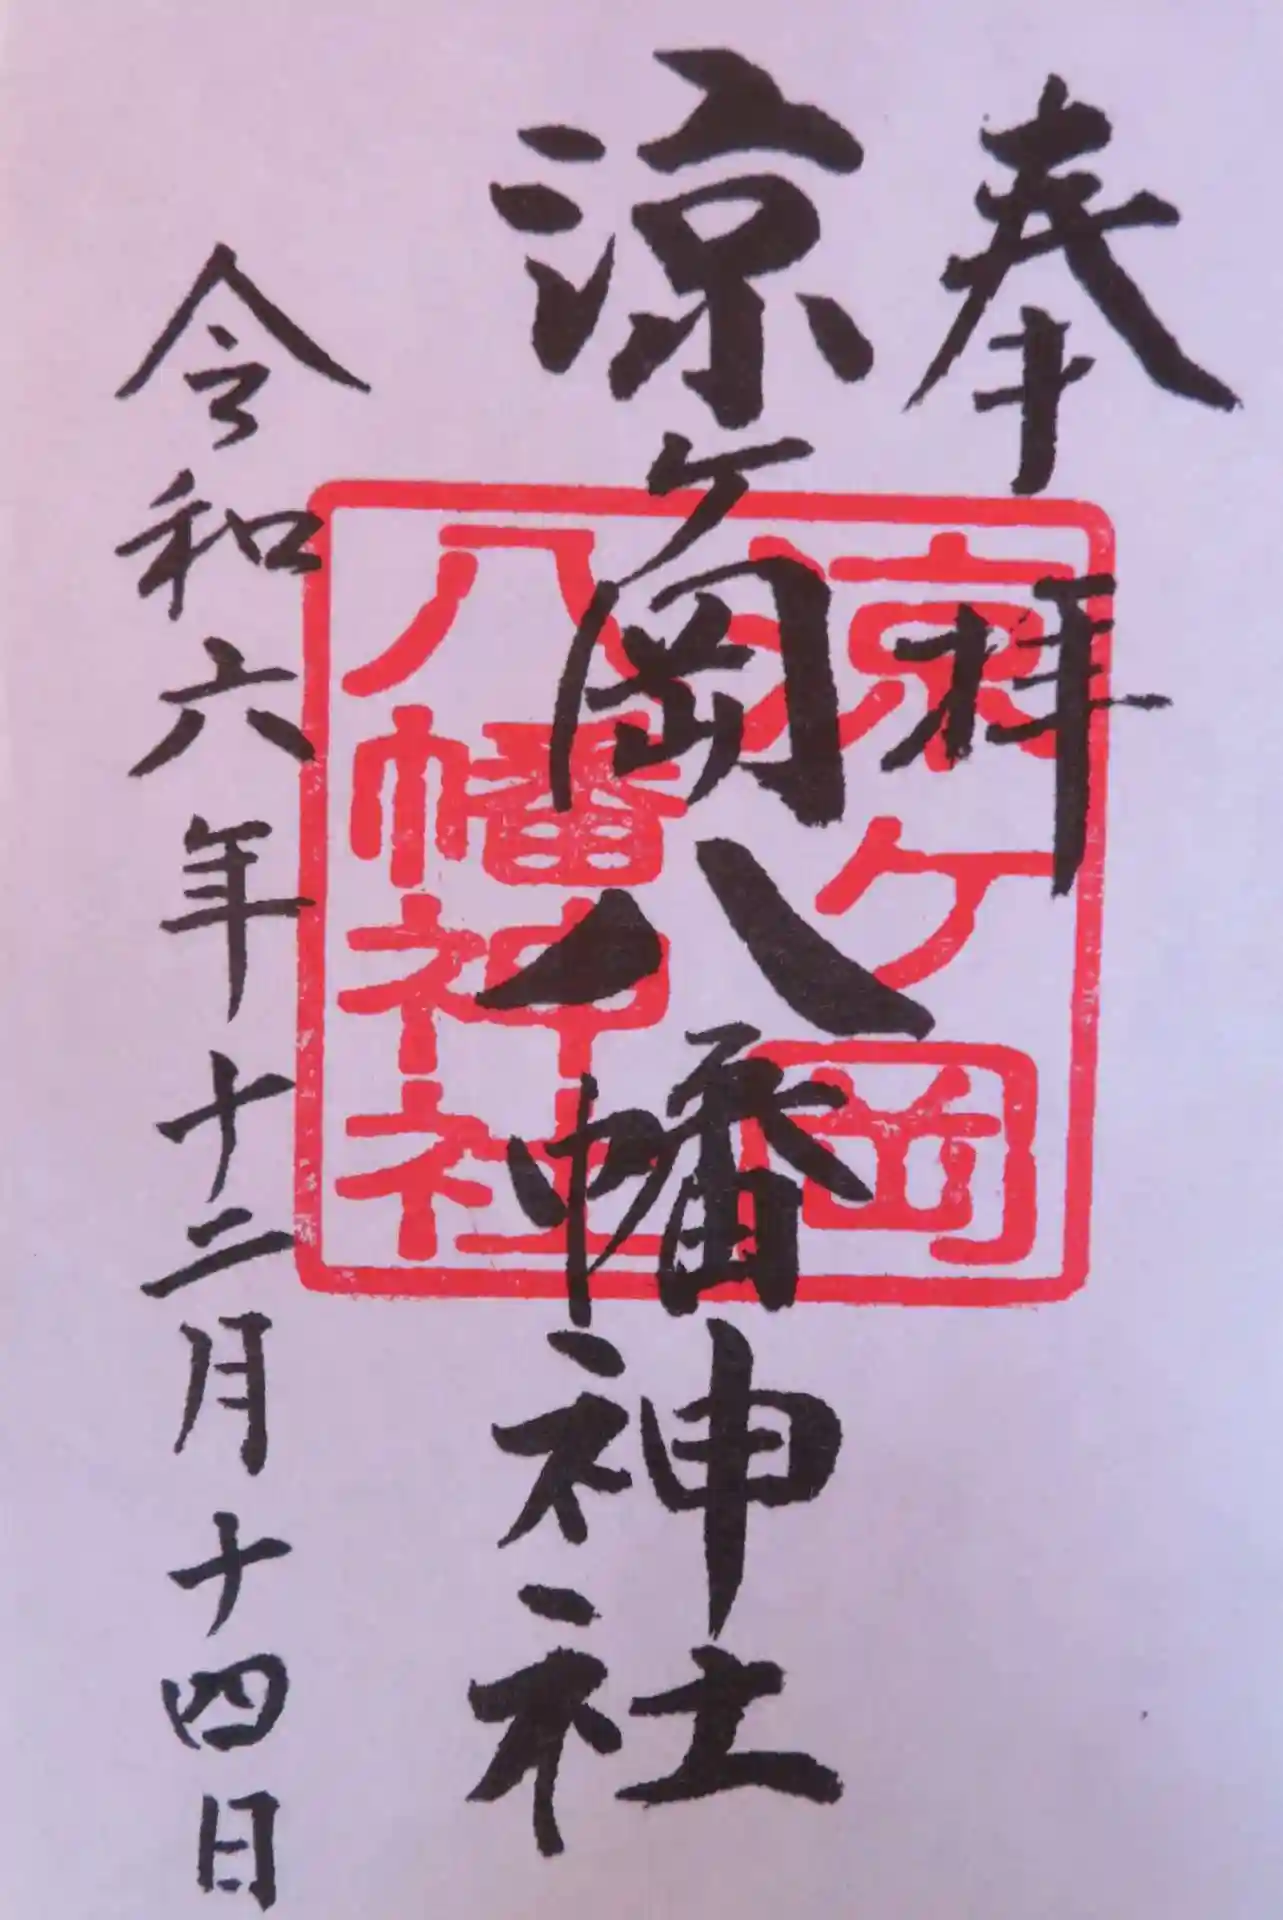 奉拝
涼ケ岡八幡神社
涼ケ岡
八幡神社
令和六年十二月十四日